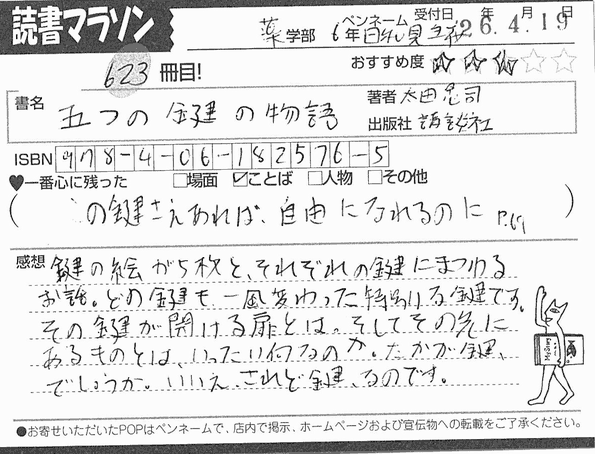 読書マラソン
薬学部 6年 ペンネーム 受付日 26年4月19日
623冊目! おすすめ度 ★★★☆☆
書名 五つの鍵の物語 著者 太田忠司
出版社 講談社
ISBN 978-4-06-182576-5
♥一番心に残った □場面 ☑ことば □人物 □その他
(この鍵さえあれば、自由になれるのに P.69)
感想 鍵の絵が5枚と、それぞれの鍵にまつわる
お話。どの鍵も一風変わった特別な鍵です。
その鍵が開ける扉とは。そしてその先に
あるものとは、いったい何なのか。たかが鍵、
でしょうか。いいえ、されど鍵、なのです。
●お寄せいただいたPOPはペンネームで、店内で掲示、ホームページおよび宣伝物への転載をご了承ください。